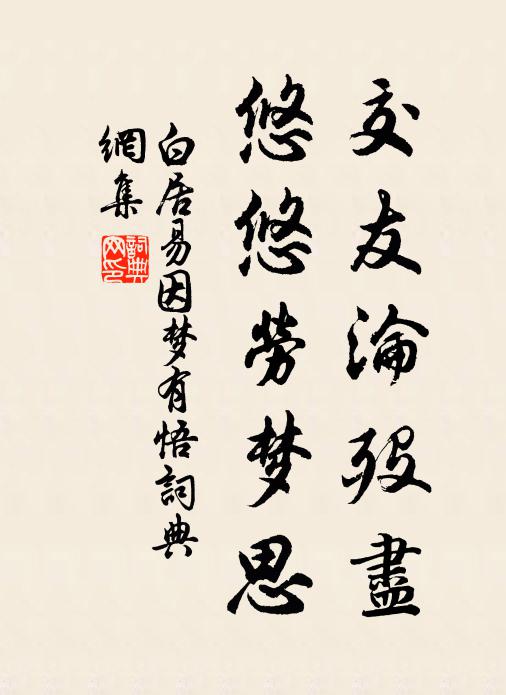 交友淪歿盡
悠悠勞梦思
白居易因梦有悟詞典
網集
詞典网印